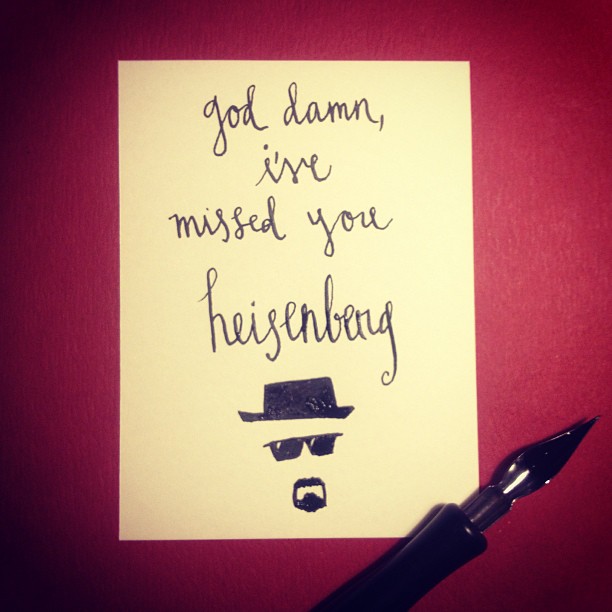 god damn,
i've
missed you
heisenberg